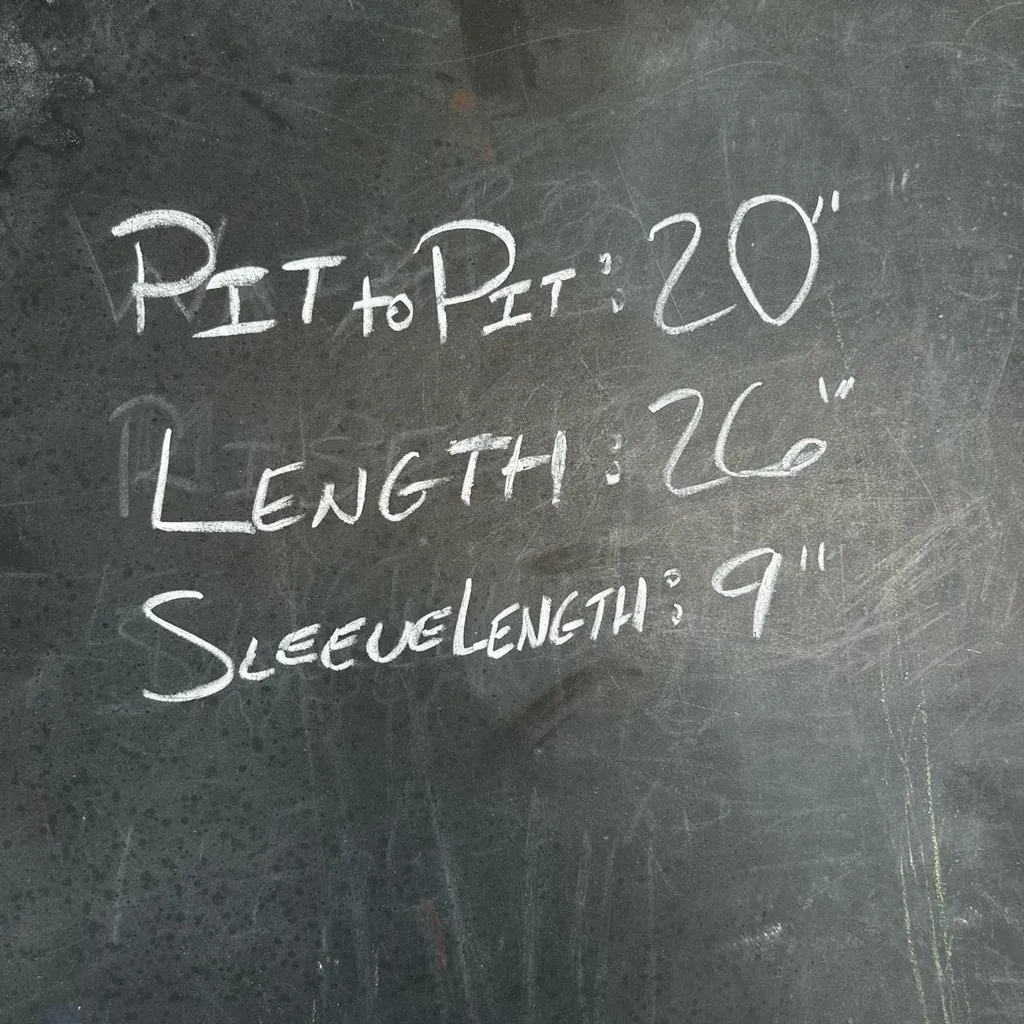 PIT to PIT: 20"
LENGTH: 26"
SLEEVE LENGTH: 9"